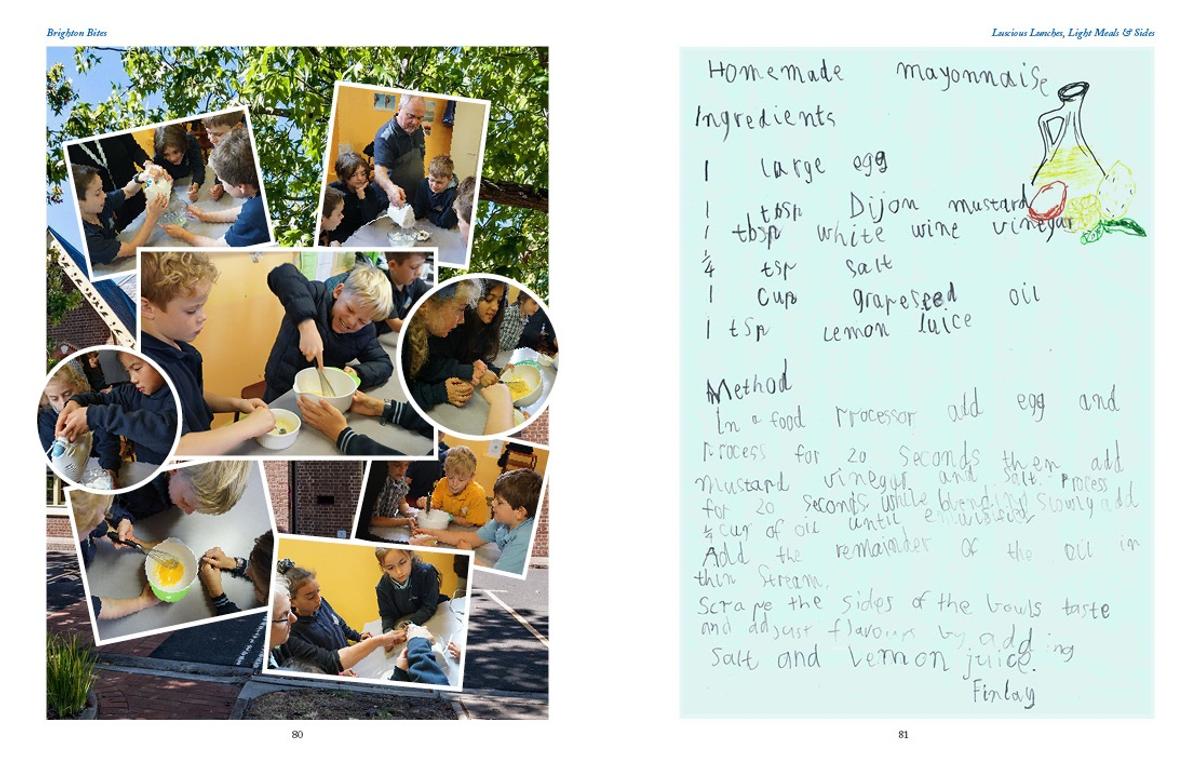 Brighton Bites
Luscious Lunches, Light Meals & Sides
Homemade mayonnaise
Ingredients
1 large egg
1 tbsp Dijon mustard
1 tbsp white wine vinegar
1/4 tsp Salt
1 Cup grapeseed oil
1 tsp Lemon Juice
Method
In a food Processor add egg and
Process for 20 Seconds then add
mustard vinegar and Salt Process
for 20 Seconds while slowly add
1/4 cup of oil until
Add the remainder of the oil in
thin Stream
Scrape the sides of the bowls taste
and adjust flavour by adding
Salt and Lemon juice.
Finlay
80
81